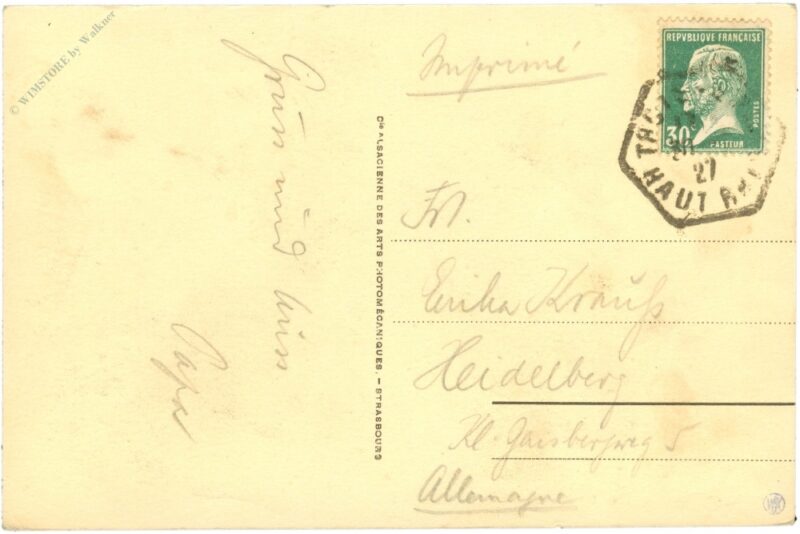 © WIMSTORE by Walkner
Gruss und Kuss
Papa
Cie ALSACIENNE DES ARTS PHOTOMÉCANIQUES. – STRASBOURG
Imprimé
REPVBLIQUE FRANÇAISE
30c
POSTES
PASTEUR
27
HAUT RHIN
Frl.
Erika Krauß
Heidelberg
Kl. Gaisbergweg 5
Allemagne